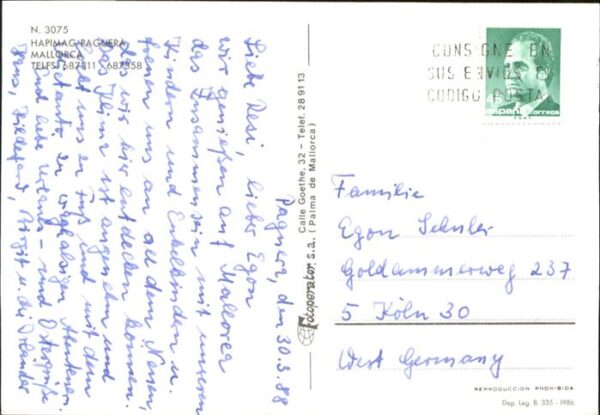 N. 3075
HAPIMAG-PAGUERA
MALLORCA
TELFS: 687311 - 687358
Paguera, den 30.3.88
Liebe Desi, lieber Egon
wir genießen auf Mallorca
das Zusammensein mit unseren
Kindern und Enkelkindern u.
freuen uns an all dem Neuen,
das wir hier entdecken können.
Das Klima ist angenehm und
uns zu Fuß und mit dem
zu waghalsigen Abenteuern.
und liebe und Ostergrüße
Hildegard, Birgit u. die
Fotoperator, s.a.
Calle Goethe, 32 - Telef. 28 91 13
(Palma de Mallorca)
CONSIGNE EN
SUS ENVIOS EL
CODIGO POSTAL
España correos
Familie
Egon Schuler
Goldammerweg 237
5 Köln 30
West Germany
REPRODUCCION PROHIBIDA
Dep. Leg. B. 335 - 1986